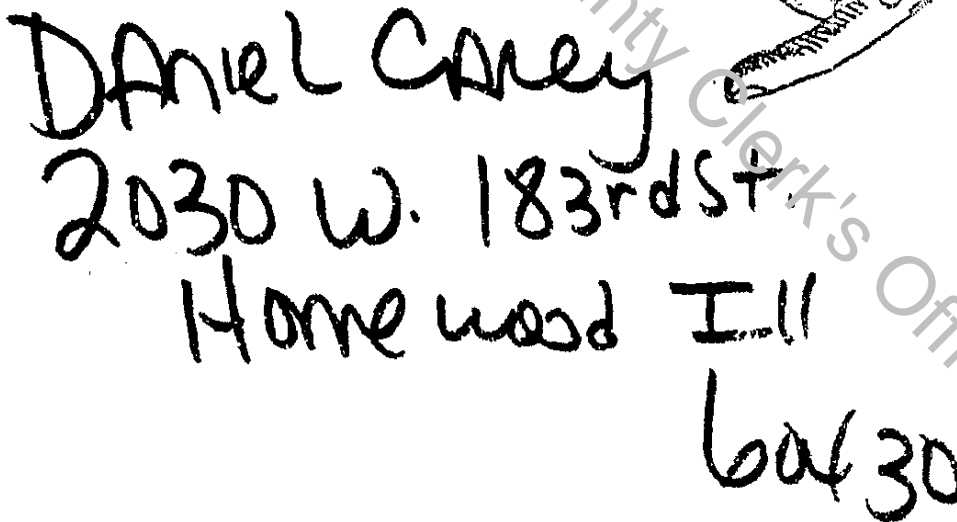 DAniel CAREY
2030 W. 183rd St.
Homewood Ill
60430
nty Clerk's Offi